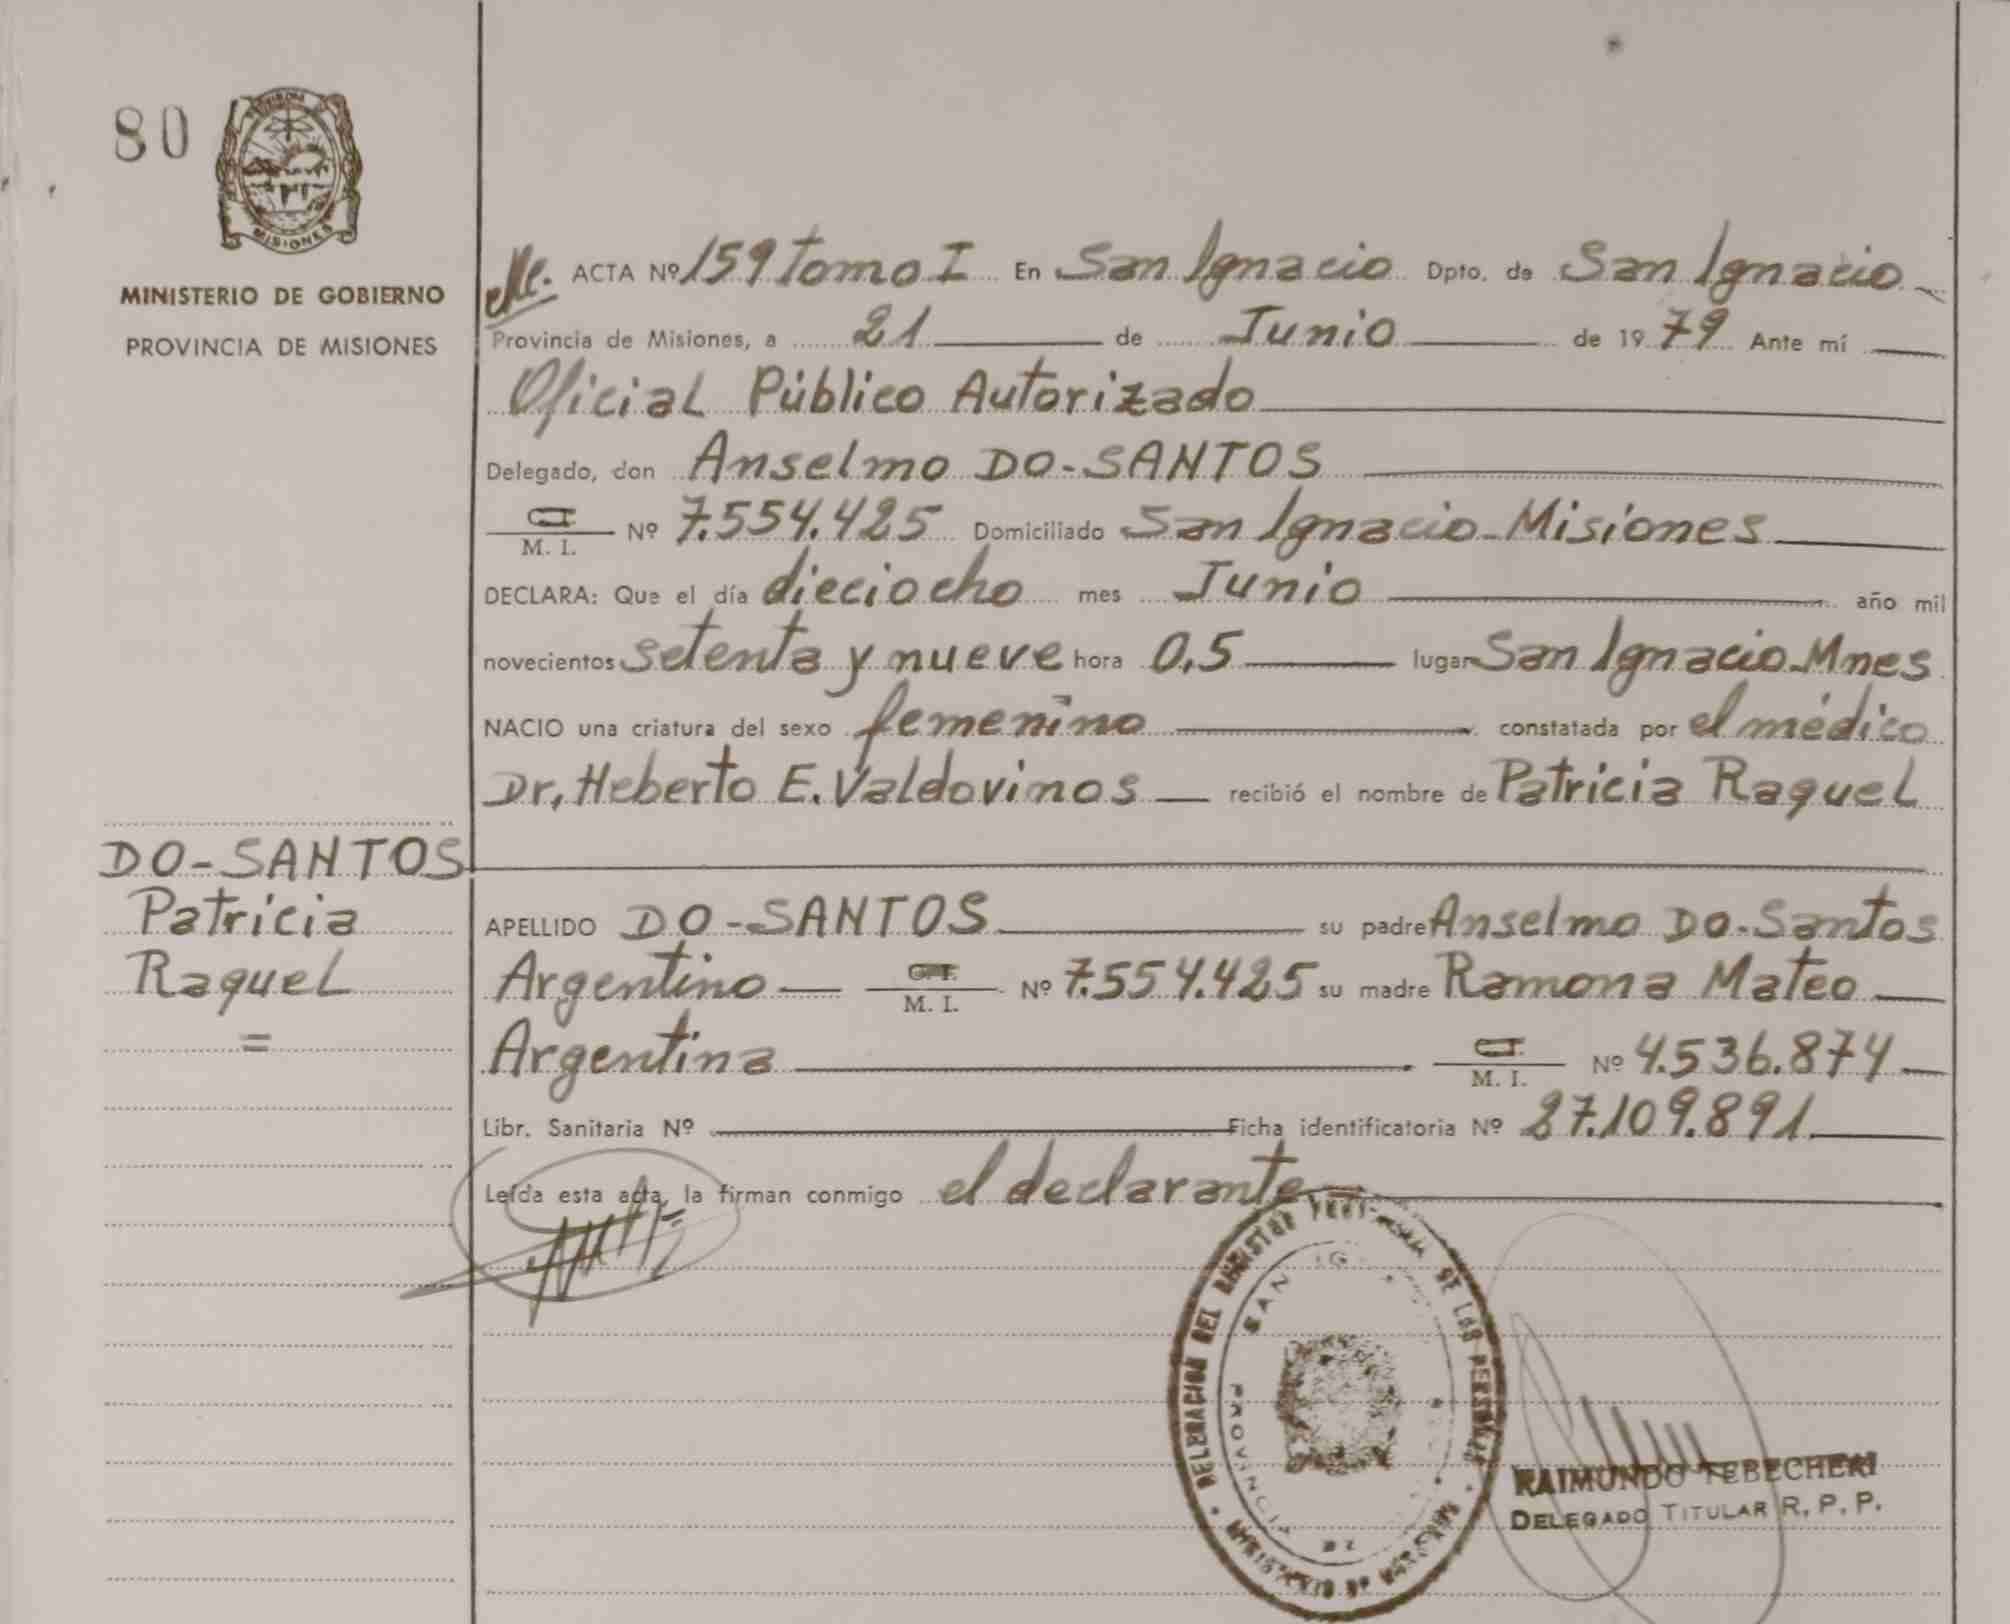 80
MISIONES
MINISTERIO DE GOBIERNO
PROVINCIA DE MISIONES
ACTA Nº 159 Tomo I En San Ignacio Dpto. de San Ignacio
Provincia de Misiones, a 21 de Junio de 1979 Ante mí
Oficial Público Autorizado
Delegado, don Anselmo DO-SANTOS
M. I. Nº 7.554.425 Domiciliado San Ignacio-Misiones
DECLARA: Que el día dieciocho mes Junio año mil
novecientos setenta y nueve hora 0,5 lugar San Ignacio-Mnes
NACIO una criatura del sexo femenino constatada por el médico
Dr. Heberto E. Valdovinos recibió el nombre de Patricia Raquel
DO-SANTOS
Patricia
Raquel
=
APELLIDO DO-SANTOS su padre Anselmo Do-Santos
Argentino C.I. M. I. Nº 7.554.425 su madre Ramona Mateo
Argentina C.I. M. I. Nº 4.536.874
Libr. Sanitaria Nº Ficha identificatoria Nº 27.109.891
Leída esta acta, la firman conmigo el declarante
DELEGACION DEL REGISTRO DE LAS PERSONAS
SAN
PROVINCIA DE
RAIMUNDO TEBECHERI
DELEGADO TITULAR R. P. P.